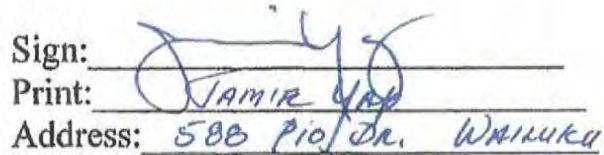 Sign:
Print: JAMIR YAP
Address: 588 Pio Dr. WAILUKU